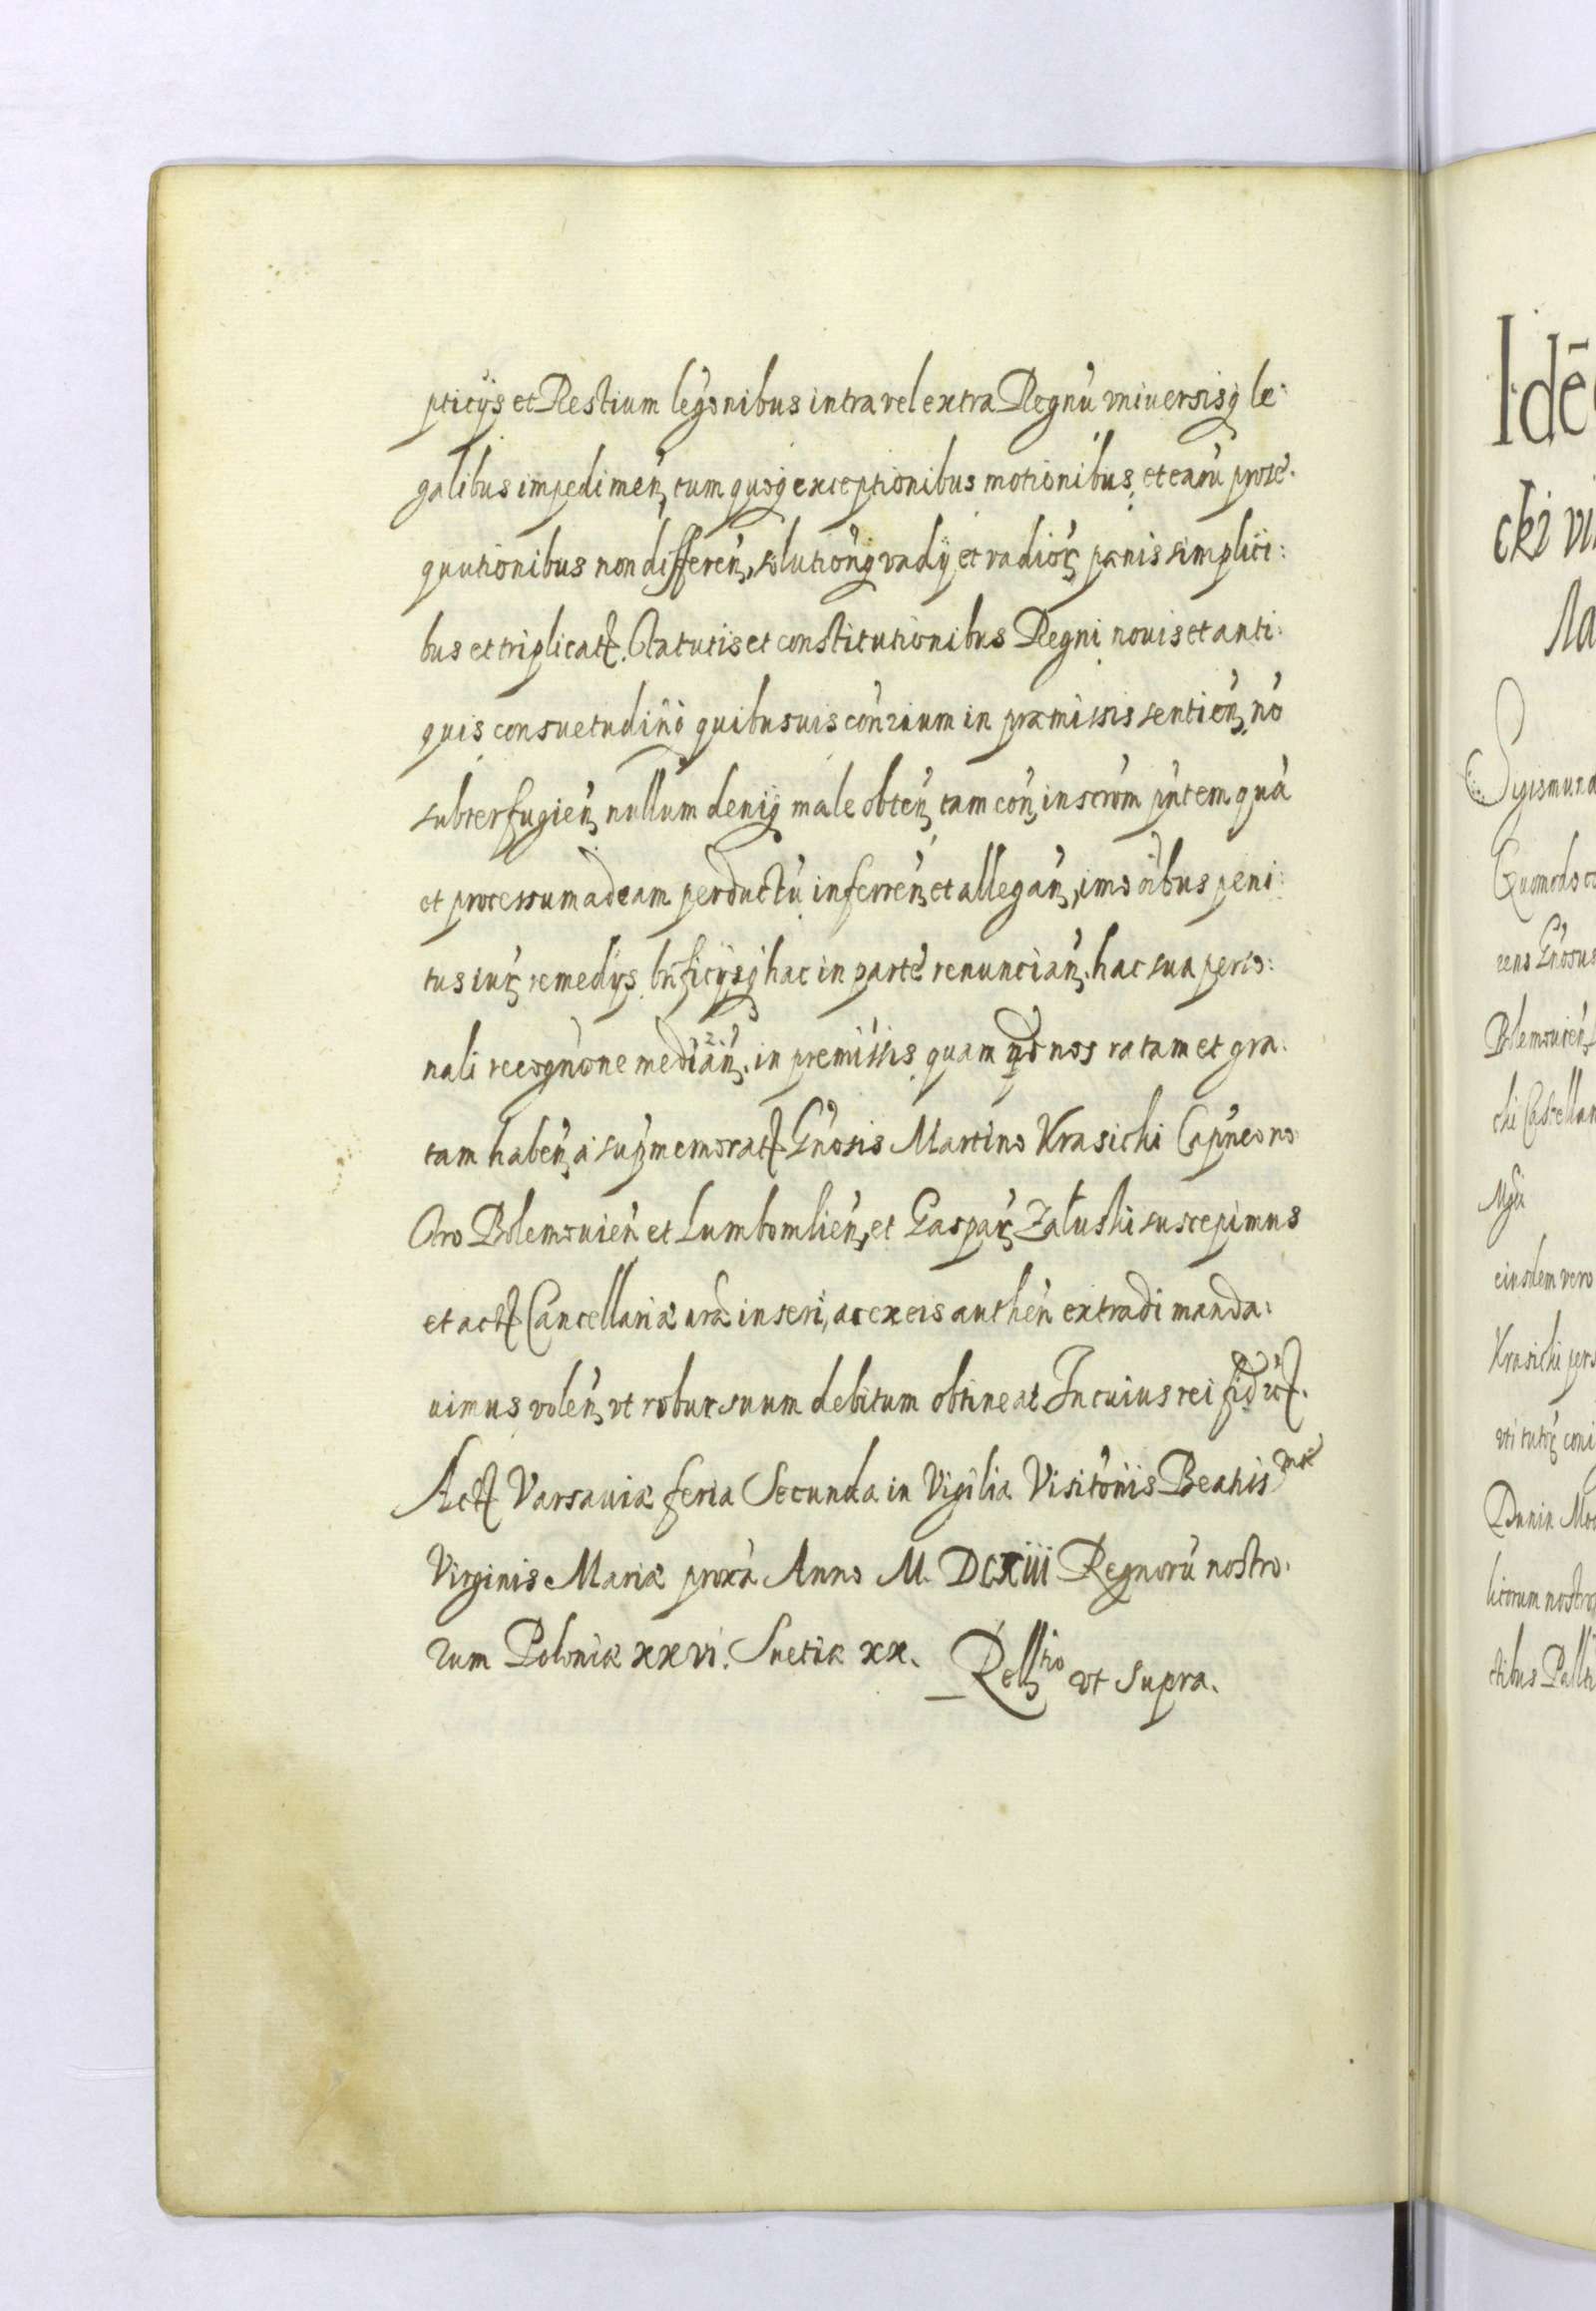 pticÿs et Restium leg̃onibus intra vel extra Regnũ vniversisq̃ le:
galibus impedimeñ, cum quoq̃ exceptionibus motionibus et earũ prose:
quutionibus non differeñ, solutioñq̃ vadÿ et vadioꝝ pænis simplici:
bus et triplicat. Statutis et constitutionibus Regni novis et anti:
quis consuetudinõ quibusuis coñrium in præmissis sentieñ, nõ
subterfugieñ nullum deniq̃ male obteñ, tam coñ, inscrõm pñtem quã
et processum ad eam perductũ inferreñ et allegañ, imo oĩbus peni:
tus iuꝝ remedÿs, bñficÿsq̃ hac in partẽ renunciañ, hac sua perso:
nali recognõne mediañ. in premissis quam nos ratam et gra:
tam habeñ, a sup̃memorat Gñosis Martino Krasicki Capñeo no:
stro Bolemouieñ et Lumbomlieñ, et Gaspaꝝ Załuski suscepimus
et act Cancellariæ nr̃æ inseri, ac ex eis autheñ extradi manda:
uimus voleñ, vt robur suum debitum obtineat In cuius rei fid̃
Act Varsaviæ feria Secunda in Vigilia Visitõnis Beatis mæ
Virginis Mariæ proxã Anno M. DCXiii Regnorũ nostro:
rum Poloniæ xxvi. Suetiæ xx. Rell tio vt supra.
Idẽ
cki vi
Sigismund
Quomodo co
rens Gñosus
Bolemouieñ
cki Castellan
eiusdem vero
Krasicki pers
vti tutoꝝ coni
Dunin
licorum nostro